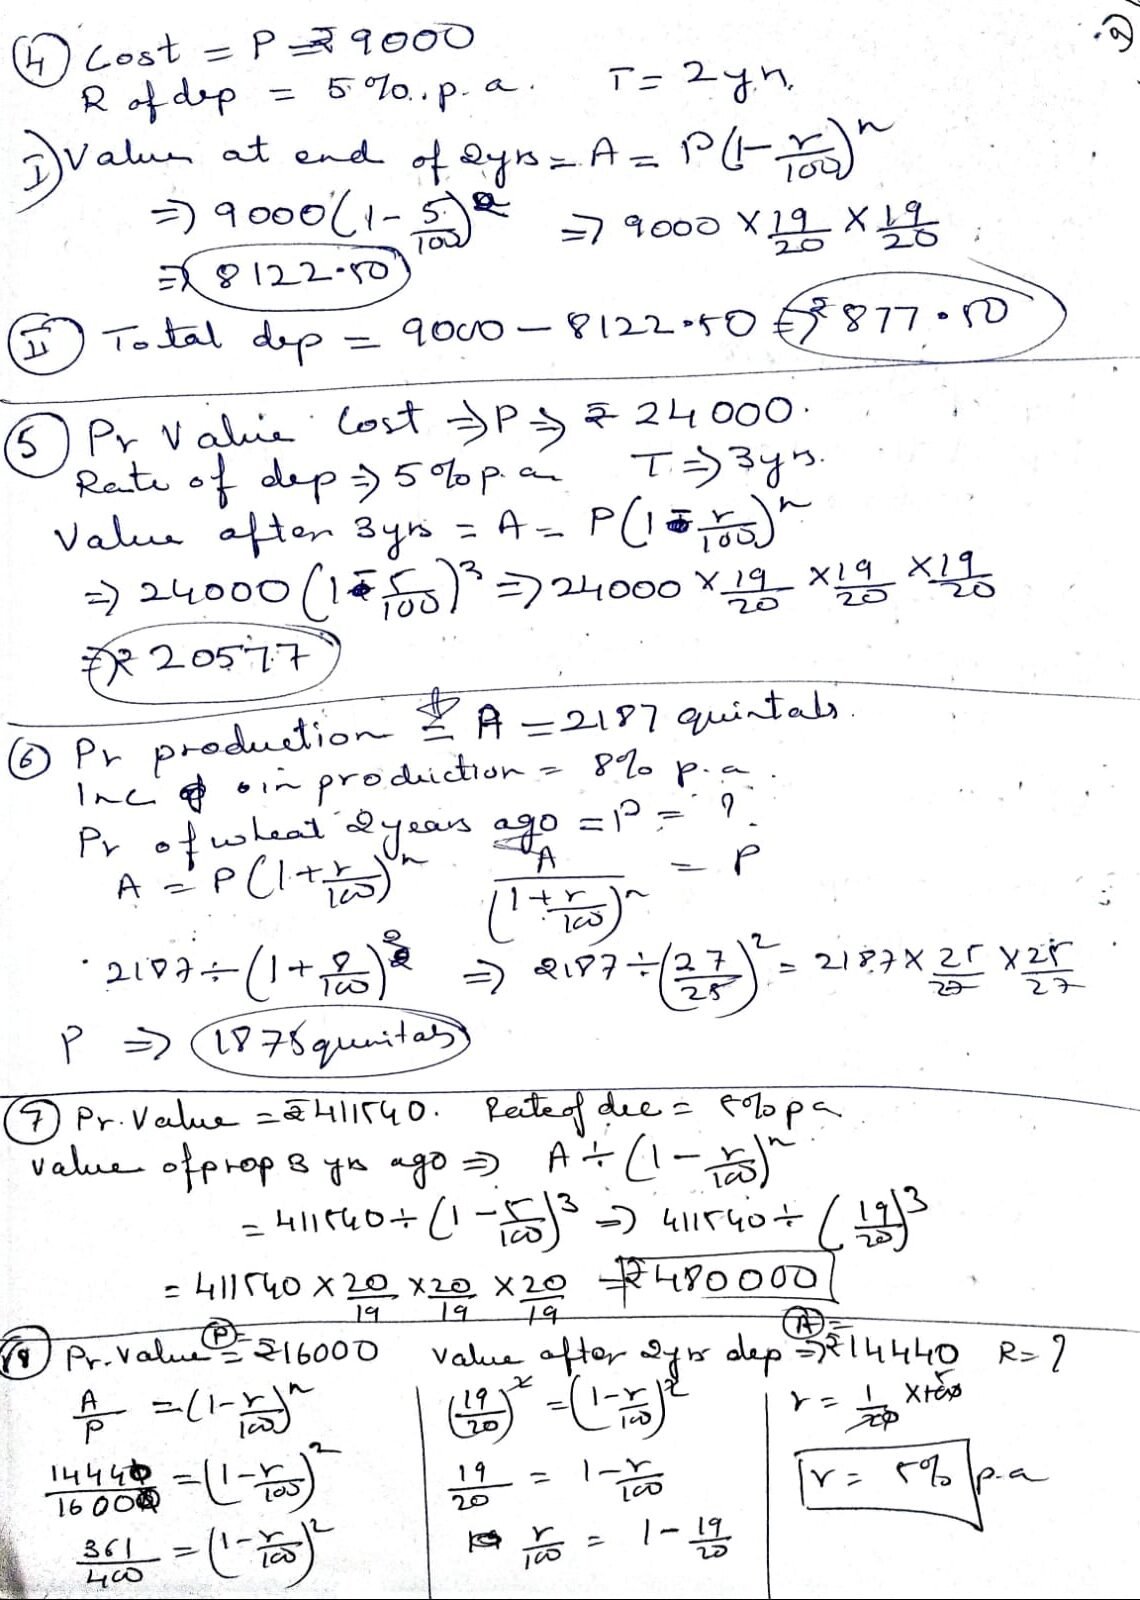 2
④ Cost = P = ₹ 9000
R of dep = 5 %. p. a. T = 2 yrs.
I) Value at end of 2yrs = A = P(1 - r/100)^n
=> 9000 (1 - 5/100)^2 => 9000 × 19/20 × 19/20
=> 8122.50
Ⅱ Total dep = 9000 - 8122.50 => ₹ 877.50
⑤ Pr Value Cost => P => ₹ 24000.
Rate of dep => 5% p. a T => 3 yrs.
Value after 3yrs = A = P(1 - r/100)^n
=> 24000 (1 - 5/100)^3 => 24000 × 19/20 × 19/20 × 19/20
=> ₹ 20577
⑥ Pr production = A = 2187 quintals.
Inc in production = 8% p.a.
Pr of wheat 2 years ago = P = ?
A = P(1 + r/100)^n A/(1 + r/100)^n = P
2187 ÷ (1 + 8/100)^2 => 2187 ÷ (27/25)^2 = 2187 × 25/27 × 25/27
P => 1875 qunitals
⑦ Pr. Value = ₹ 411540. Rate of dec = 5% p a
value of prop 3 yrs ago => A ÷ (1 - r/100)^n
= 411540 ÷ (1 - 5/100)^3 => 411540 ÷ (19/20)^3
= 411540 × 20/19 × 20/19 × 20/19 = ₹ 480000
⑧ Pr. Value Ⓟ = ₹ 16000 value after 2yrs dep Ⓐ => ₹ 14440 R = ?
A/P = (1 - r/100)^n
14440/16000 = (1 - r/100)^2
361/400 = (1 - r/100)^2
(19/20)^2 = (1 - r/100)^2
19/20 = 1 - r/100
r/100 = 1 - 19/20
r = 1/20 × 100 5
r = 5% p.a